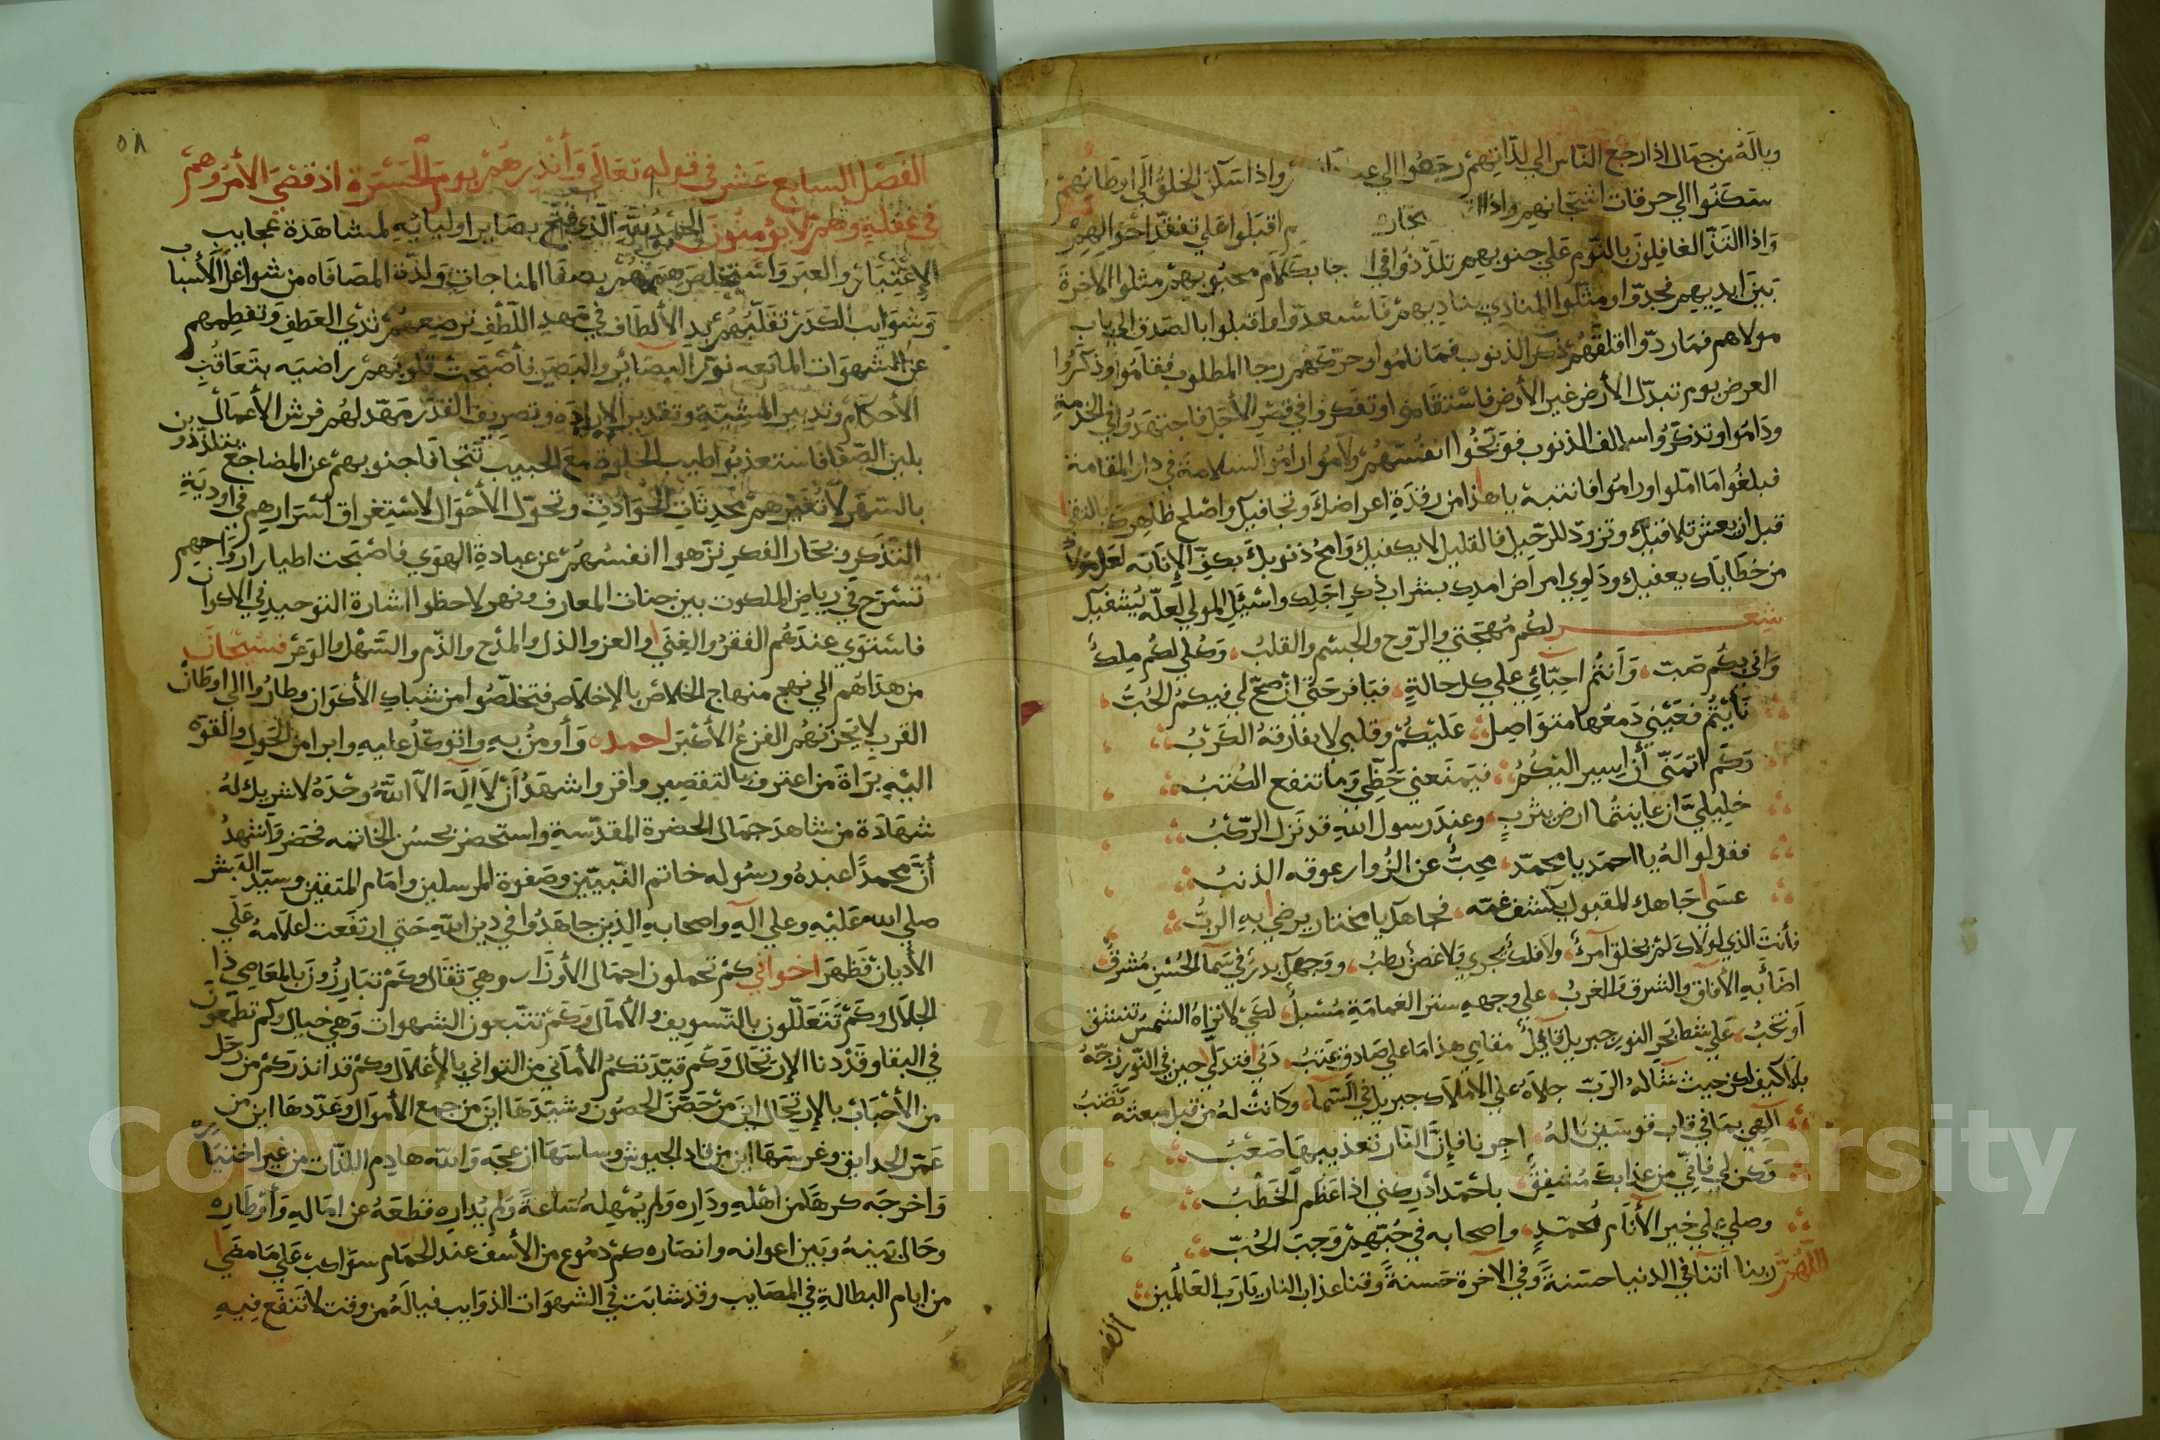 وياله من جمال اذا رجع الناس الي لذاتهم رجعوا الي واذا سكن الخلق الي اوطانهم
سكنوا الي حرقات اشجانهم واذا اقبلوا علي تفقد احوالهم
واذا التذ الغافلون بالنوم علي جنوبهم تلذذوا في بكلام محبوبهم مثلوا الاخرة
بين ايديهم فجدوا ومثلوا المنادي يناديهم فاستعدوا واقبلوا بالصدق الي باب
مولاهم فما ردوا اقلقهم ذكر الذنوب فما ناموا وحركهم رجا المطلوب فقاموا وذكروا
العرض يوم تبدل الأرض غير الأرض فاستقاموا وتفكروا في قصر الأجل فاجتهدوا في الخدمة
وداموا وتذكروا سالف الذنوب فوبخوا انفسهم ولاموا وراموا السلامة في دار المقامة
فبلغوا ما املوا وراموا فانتبه يا هذا من رقدة اعراضك وتجافيك واصلح ظاهرك بالتقي
قبل ان يعش تلافيك وتزود للرحيل فالقليل لا يكفيك وامح ذنوبك بكف الإنابه لعل
من خطاياك يعفيك وداوي امراض امديك بشراب ذكر اجلك واسئل المولي لعله يشفيك
شعر لكم مهجتي والروح والجسم والقلب وكلي لكم ملك
واني بكم صب وأنتم احبائي علي كل حالة فيا فرحتي ان صح لي فيكم الحب
نأيتم فعيني دمعها متواصل عليكم وقلبي لا يفارقه الكرب
وكم اتمني أن اسير اليكم فيمنعني حظي وما تنفع الكتب
خليلي ان عاينتما ارض يثرب وعند رسول الله قد نزل الركب
فقولوا له يا احمد يا محمد محب عن الزوار عوقه الذنب
عسي جاهك المقبول يكشف غمه فجاهك يا مختار يرضي به الرب
فأنت الذي لولاك لم يخلق امرئ ولا فلك يجري ولا غصن رطب ووجهك بدر في سما الحسن مشرق
اضا به الآفاق والشرق والغرب علي وجهه ستر الغمامة مسبل لكي لا تراه الشمس تنشق
أو تخب علي شط بحر النور جبريل قايل مقامي هذا ما علي صادق عتب دني فتدلي حين في النور زجه
بلا كيف لكن حيث شاله الرب جلاه علي الاملاك جبريل في السما وكانت له من قبل مبعثه تصب
الهي بما في قاب قوسين ناله اجرنا فإن النار تعذيبها صعب
وكن لي فاني من عذابك مشفق باحمد ادركني اذا عظم الخطب
وصلي علي خير الأنام محمد واصحابه في حبهم وجب الحب
اللهم ربنا اتنا في الدنيا حسنة وفي الآخرة حسنة وقنا عذاب النار يا رب العالمين
الفصل
٥٨
الفصل السابع عشر في قوله تعالي وأنذرهم يوم الحسرة اذ قضي الأمر وهم
في غفلة وهم لا يؤمنون الحمد لله الذي فتح بصاير اوليائه لمشاهدة عجايب
الإعتبار والعبر واستخلص هممهم بصفا المناجات ولذة المصافاه من شواغل الأسباب
وشوايب الكدر تقلبهم يد الألطاف في مهد اللطف ترضعهم ثدي العطف وتفطمهم
عن الشهوات المانعه نور البصائر والبصير فأصبحت قلوبهم راضيه بتعاقب
الأحكام وتدبير المشيئة وتقدير الإراده وتصريف القدر مهد لهم فرش الأعمال
بلين الصفا فاستعذبوا طيب الخلوة مع الحبيب تتجافا جنوبهم عن المضاجع يتلذذون
بالسهر لا تغيرهم محدثات الحوادث وتحول الأحوال لاستغراق اسرارهم في اودية
التذكر وبحار الفكر نزهوا انفسهم عن عبادة الهوي فاصبحت اطيار ارواحهم
تسرح في رياض الملكوت بين جنات المعارف ونهر لاحظوا اشارة التوحيد في الاكوان
فاستوي عندهم الفقر والغني والعز والذل والمدح والذم والسهل والوعر فسبحان
من هداهم الي نهج منهاج الخلاص بالإخلاص فتخلصوا من شباك الأكوان وطاروا الي اوطان
القرب لا يحزنهم الفزع الأكبر احمده وأومن به واتوكل عليه وابرا من الحول والقوه
اليه براة من اعترف بالتقصير واقر واشهد أن لا اله الا الله وحده لا شريك له
شهادة من شاهد جمال الحضرة المقدسة واستحضر بحسن الخاتمه فحضر وأشهد
أن محمدا عبده ورسوله خاتم النبيين وصفوة المرسلين وامام المتقين وسيد البشر
صلي الله عليه وعلي آله واصحابه الذين جاهدوا في دين الله حتي ارتفعت اعلامه علي
الأديان فظهر اخواني كم تحملون احمال الأوزار وهي ثقال وكم تبارزون بالمعاصي ذا
الجلال وكم تتعللون بالتسويف والأمال وكم تتبعون الشهوات وهي خيال وكم تطمعون
في البقا وقد دنا الإرتحال وكم قيدتكم الأماني من التواني بالأغلال وكم قد انذركم من رحل
من الأحباب بالإرتحال اين من حصن الحصون وشيدها اين من جمع الأموال وعددها اين من
عمر الحدايق وغرسها اين من قاد الجيوش وساسها ازعجه والله هادم اللذات من غير اختياره
واخرجه كرها من اهله وداره ولم يمهله ساعة ولم يداره قطعه عن اماله وأوطاره
وحال بينه وبين اعوانه وانصاره كم دموع من الأسف عند الحمام سواكب علي ما مضي
من ايام البطالة في المصايب وقد شابت في الشهوات الذوايب فياله من وقت لا تنفع فيه
Copyright © King Saud University